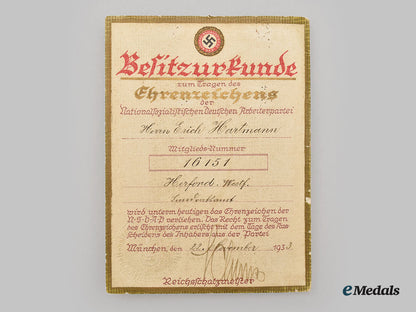 Besitzurkunde
zum Tragen des
Ehrenzeichens
der
Nationalsozialistischen Deutschen Arbeiterpartei
Herrn Erich Hartmann
Mitglieds-Nummer
16151
Herford. Westf.
wird unterm heutigen das Ehrenzeichen der
N·S·D·A·P verliehen. Das Recht zum Tragen
des Ehrenzeichens erlischt mit dem Tage des Aus-
scheidens des Inhabers aus der Partei
München, den 22. November 1933
Reichsschatzmeister
eMedals